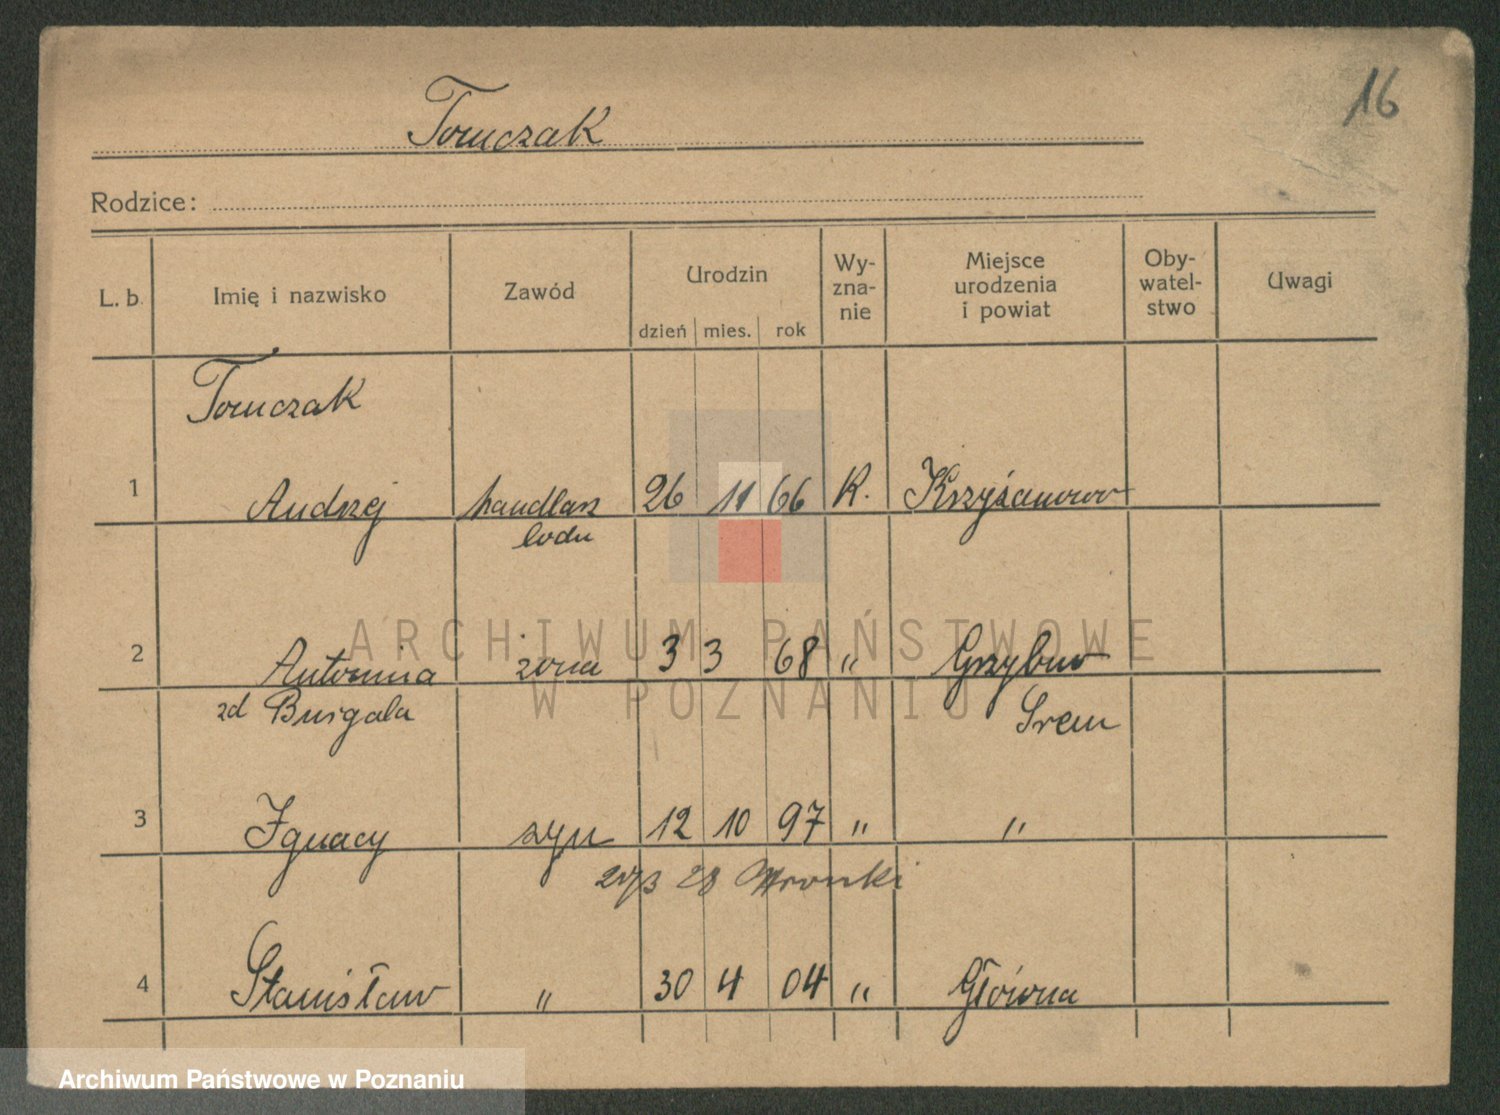 16
Tomczak
Rodzice:
L. b. Imię i nazwisko Zawód Urodzin dzień mies. rok Wy-zna-nie Miejsce urodzenia i powiat Oby-watel-stwo Uwagi
Tomczak
1 Andrzej handlarz 26 11 66 R. Krzyżanowo
lodu
2 Antonina żona 3 3 68 " Grzybno
zd Burgala Srem
3 Ignacy syn 12 10 97 " "
28 Wronki
4 Stanisław " 30 4 04 " Główna
ARCHIWUM PAŃSTWOWE
W POZNANIU
Archiwum Państwowe w Poznaniu